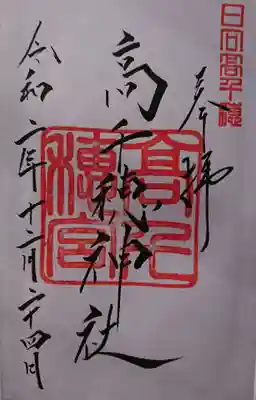 日向高千穂
奉拝
高千穂神社
高千穂宮
令和二年十二月二十四日